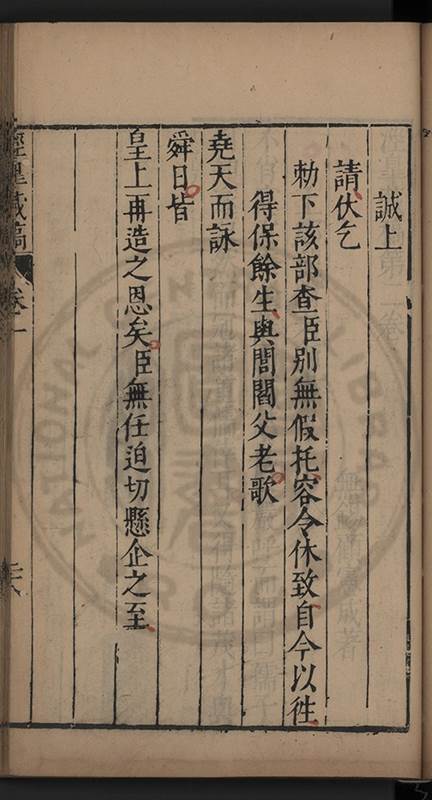 誠上
請伏乞
勑下該部查臣別無假托容令休致自今以徃
得保餘生與閭閻父老歌
堯天而詠
舜日皆
皇上再造之恩矣臣無任迫切懸企之至
涇臯藏稿 卷一